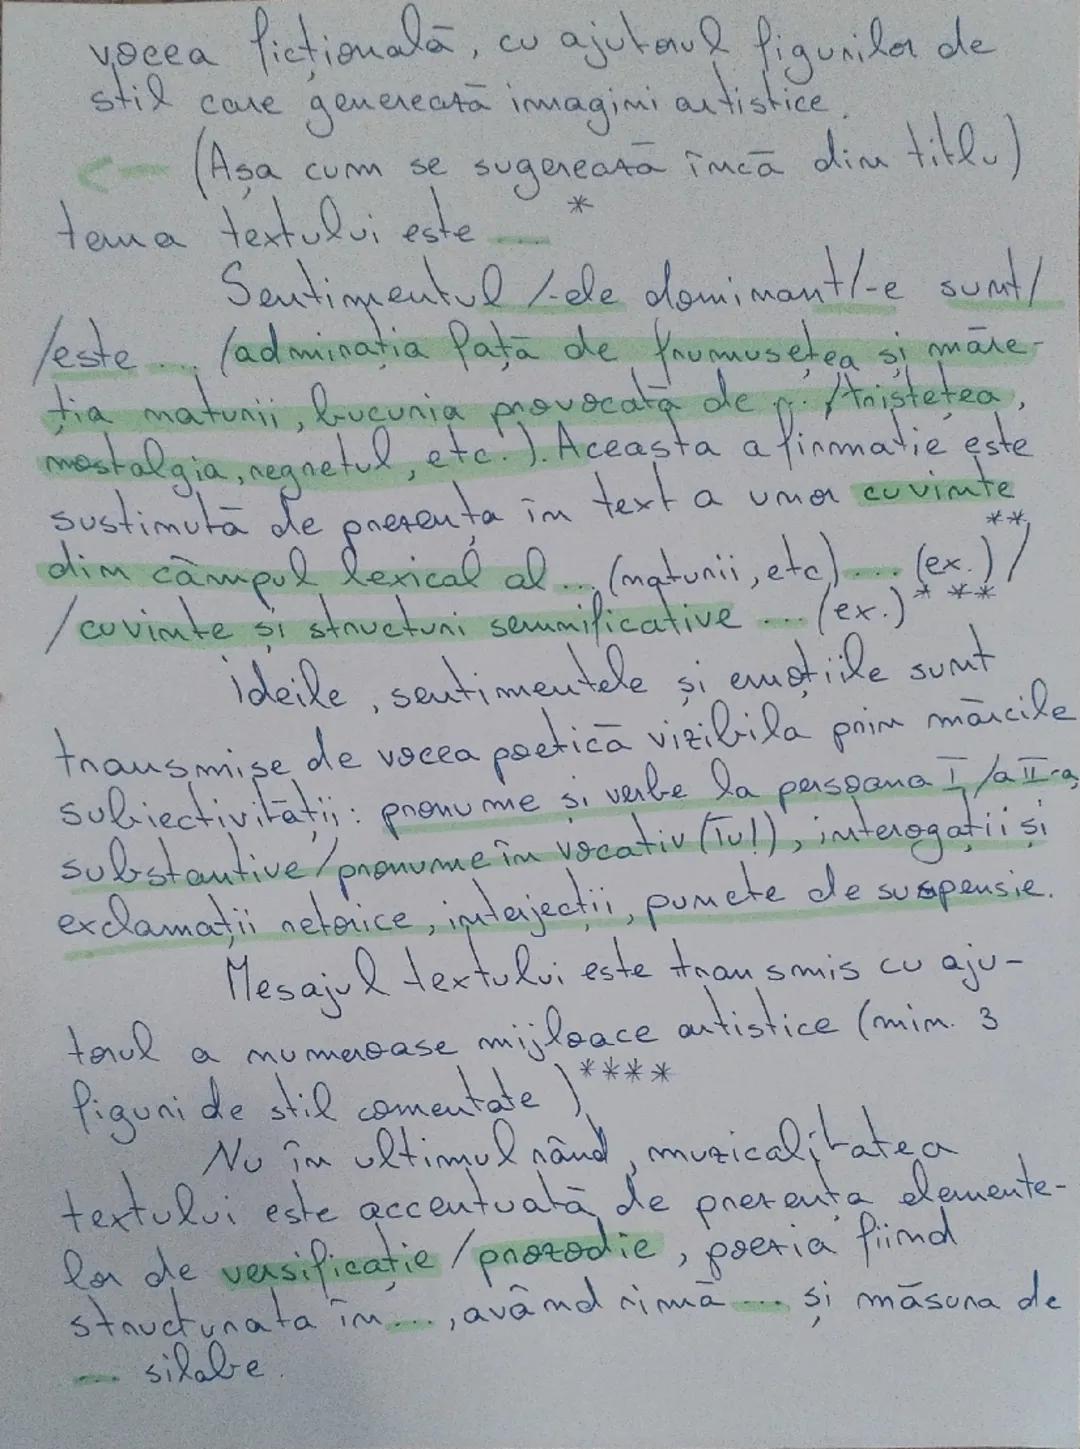 vocea ficțională, cu ajutorul figurilor de
stil care generează imagini artistice.
(Așa cum se sugerează încă din titlu)
tema textului este ... *
Sentimentul /-ele dominant/-e sunt/
/este ... (admirația față de frumusețea și măre-
ția naturii, bucuria provocată de ... /tristețea,
nostalgia, regretul, etc.). Aceasta afirmație este
sustinută de prezența în text a unor cuvinte
din câmpul lexical al ... (naturii, etc) ... (ex.)** /
/cuvinte și structuri semnificative ... (ex.)* **
ideile, sentimentele și emoțiile sunt
transmise de vocea poetică vizibila prin mărcile
subiectivității: pronume și verbe la persoana I /a II-a,
substantive/pronume în vocativ (Tu!), interogații și
exclamații retorice, interjecții, puncte de suspensie.
Mesajul textului este transmis cu aju-
torul a numeroase mijloace artistice (min. 3
figuri de stil comentate) ****
Nu în ultimul rând, muzicalitatea
textului este accentuată de prezența elemente-
lor de versificație /prozodie, poezia fiind
structurata în ..., având rimă ... și măsura de
... silabe.